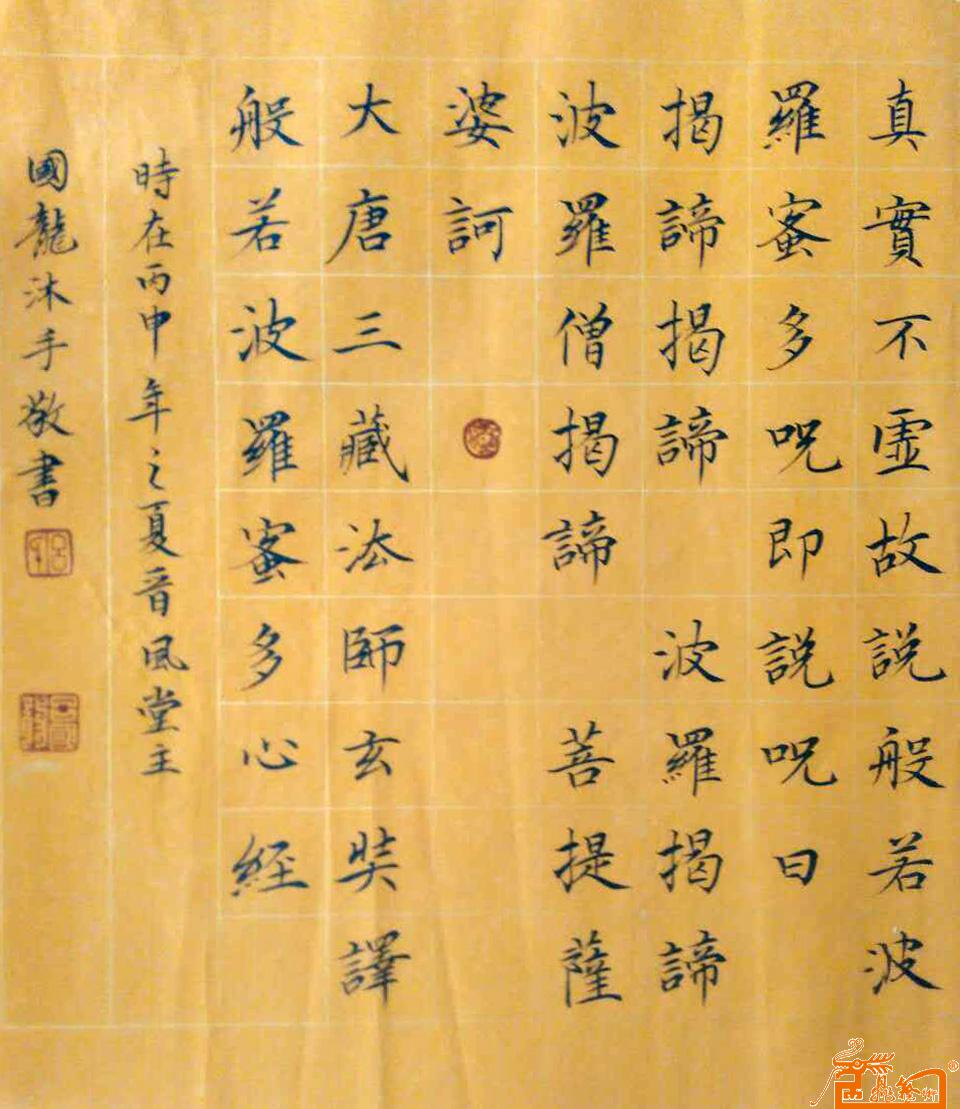 真實不虛故説般若波
羅蜜多呪即説呪曰
揭諦揭諦 波羅揭諦
波羅僧揭諦 菩提薩
婆訶
大唐三藏法師玄奘譯
般若波羅蜜多心経
時在丙申年之夏音風堂主
國龍沐手敬書